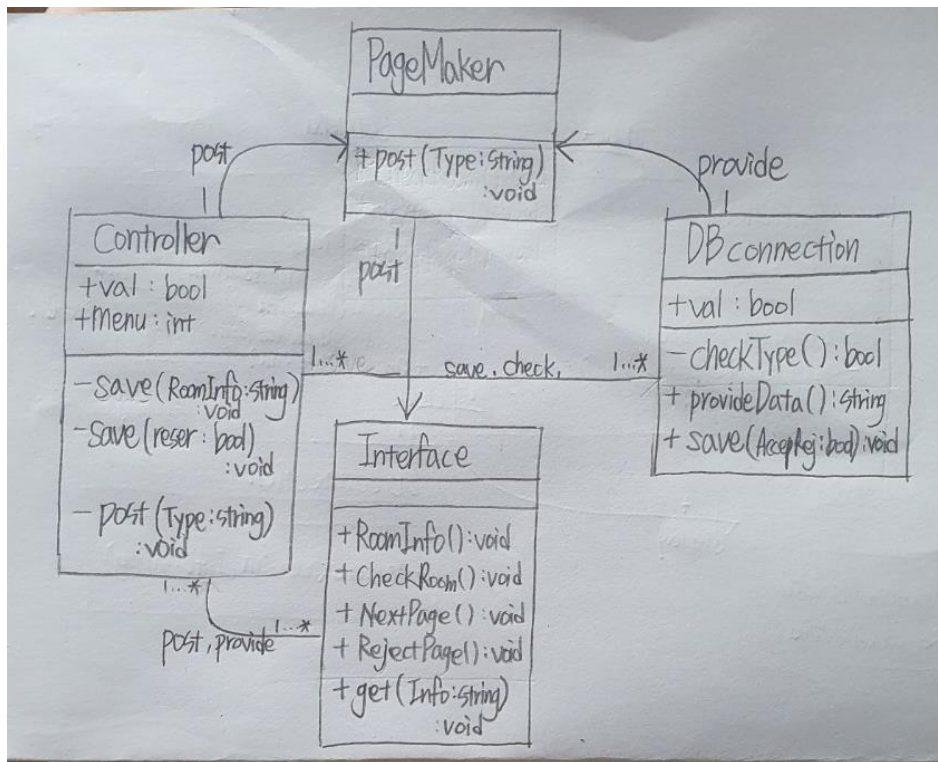 PageMaker
+ post (Type:String)
:void
post
1
provide
1
Controller
+val : bool
+Menu : int
-save(RoomInfo:string)
:void
-save(reser: bool)
:void
- post (Type:string)
:void
1
post
DBconnection
+val : bool
- checkType() : bool
+ provideData() : string
+ save(AccepRej:bool):void
1...*
save, check,
1...*
Interface
+RoomInfo():void
+CheckRoom():void
+ NextPage() : void
+ RejectPage():void
+get(Info:string)
:void
1...*
1...*
post, provide